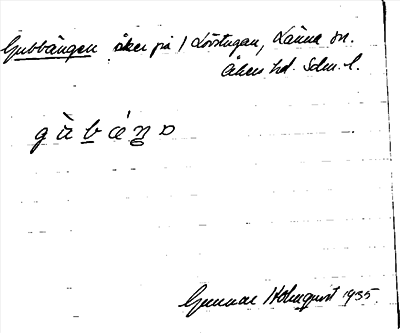 Gubbängen åker på 1 Lövstugan, Länna sn.
Åkers hd. Sdm. l.
g ù b á ŋ o
Gunnar Holmqvist 1935.